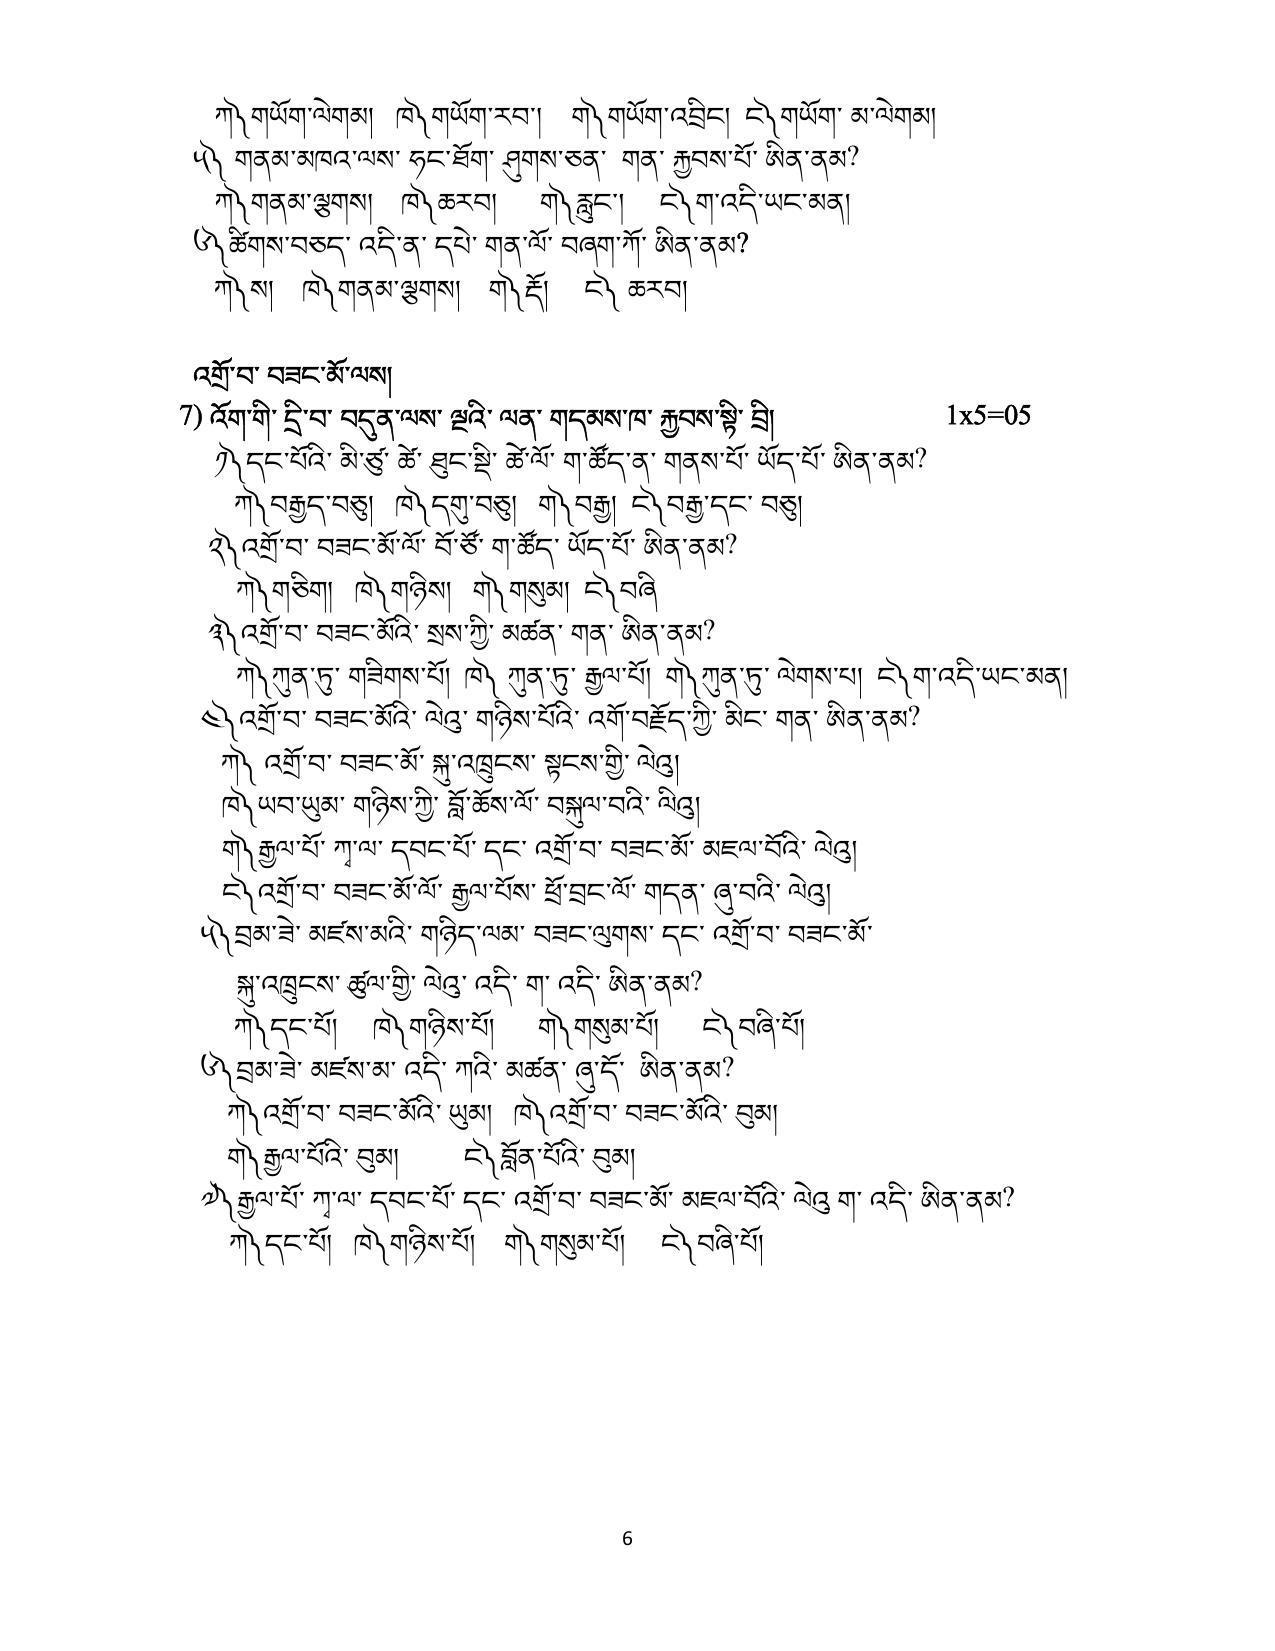 ཀ༽གཡོག་ལེགམ།  ཁ༽གཡོག་རབ་།  ག༽གཡོག་འབྲིང།  ང༽གཡོག་ མ་ལེགམ།
༥༽ གནམ་མཁའ་ལས་ ཧང་ཐོག་ ཤུགས་ཅན་  གན་ རྐྱབས་པོ་ ཨིན་ནམ?
ཀ༽གནམ་ལྕགས།  ཁ༽ཆརབ།  ག༽རླུང་།  ང༽ག་འདི་ཡང་མན།
༦༽ཚིགས་བཅད་ འདི་ན་ དཔེ་ གན་ལོ་ བཞག་ཀོ་ ཨིན་ནམ?
ཀ༽ས།  ཁ༽གནམ་ལྕགས།  ག༽རྡོ།  ང༽ ཆརབ།
འགྲོ་བ་ བཟང་མོ་ལས།
7) འོག་གི་ དྲི་བ་ བདུན་ལས་ ལྔའི་ ལན་ གདམས་ཁ་ རྐྱབས་སྟི་ བྲི།  1x5=05
༡༽དང་པོའི་ མི་ཙུ་ ཚེ་ ཐུང་སྡི་ ཚེ་ལོ་ ག་ཚོད་ན་ གནས་པོ་ ཡོད་པོ་ ཨིན་ནམ?
ཀ༽བརྒྱད་བཅུ།  ཁ༽དགུ་བཅུ།  ག༽བརྒྱ།  ང༽བརྒྱ་དང་ བཅུ།
༢༽འགྲོ་བ་ བཟང་མོ་ལོ་ བོ་ཙོ་ ག་ཚོད་ ཡོད་པོ་ ཨིན་ནམ?
ཀ༽གཅིག།  ཁ༽གཉིས།  ག༽གསུམ།  ང༽བཞི
༣༽འགྲོ་བ་ བཟང་མོའི་ སྲས་ཀྱི་ མཚན་ གན་ ཨིན་ནམ?
ཀ༽ཀུན་ཏུ་ གཟིགས་པོ།  ཁ༽ ཀུན་ཏུ་ རྒྱལ་པོ།  ག༽ཀུན་ཏུ་ ལེགས་པ།  ང༽ག་འདི་ཡང་མན།
༤༽འགྲོ་བ་ བཟང་མོའི་ ལེའུ་ གཉིས་པོའི་ འགོ་བརྗོད་ཀྱི་ མིང་ གན་ ཨིན་ནམ?
ཀ༽ འགྲོ་བ་ བཟང་མོ་ སྐུ་འཁྲུངས་ སྟངས་གྱི་ ལེའུ།
ཁ༽ཡབ་ཡུམ་ གཉིས་ཀྱི་ བློ་ཆོས་ལོ་ བསྐུལ་བའི་ ལིའུ།
ག༽རྒྱལ་པོ་ ཀཱ་ལ་ དབང་པོ་ དང་ འགྲོ་བ་ བཟང་མོ་ མཇལ་བོའི་ ལེའུ།
ང༽འགྲོ་བ་ བཟང་མོ་ལོ་ རྒྱལ་པོས་ ཕོ་བྲང་ལོ་ གདན་ ཞུ་བའི་ ལེའུ།
༥༽བྲམ་ཟེ་ མཛས་མའི་ གཉིད་ལམ་ བཟང་ལུགས་ དང་ འགྲོ་བ་ བཟང་མོ་
སྐུ་འཁྲུངས་ ཚུལ་གྱི་ ལེའུ་ འདི་ ག་ འདི་ ཨིན་ནམ?
ཀ༽དང་པོ།  ཁ༽གཉིས་པོ།  ག༽གསུམ་པོ།  ང༽བཞི་པོ།
༦༽བྲམ་ཟེ་ མཛས་མ་ འདི་ ཀའི་ མཚན་ ཞུ་དོ་  ཨིན་ནམ?
ཀ༽འགྲོ་བ་ བཟང་མོའི་ ཡུམ།  ཁ༽འགྲོ་བ་ བཟང་མོའི་ བུམ།
ག༽རྒྱལ་པོའི་ བུམ།  ང༽བློན་པོའི་ བུམ།
༧༽རྒྱལ་པོ་ ཀཱ་ལ་ དབང་པོ་ དང་ འགྲོ་བ་ བཟང་མོ་ མཇལ་བོའི་ ལེའུ ག་ འདི་ ཨིན་ནམ?
ཀ༽དང་པོ།  ཁ༽གཉིས་པོ།  ག༽གསུམ་པོ།  ང༽བཞི་པོ།
6